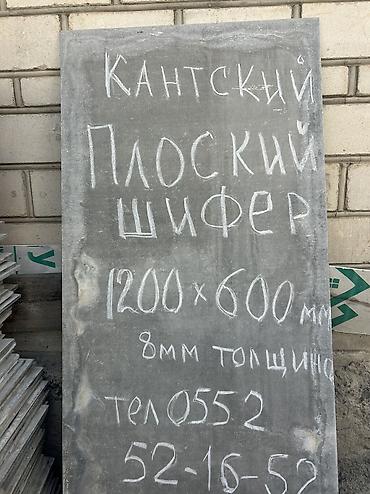 КАНТСКИЙ
ПЛОСКИЙ
ШИФЕР
1200 × 600 мм
8мм толщина
тел 0552
52-16-52